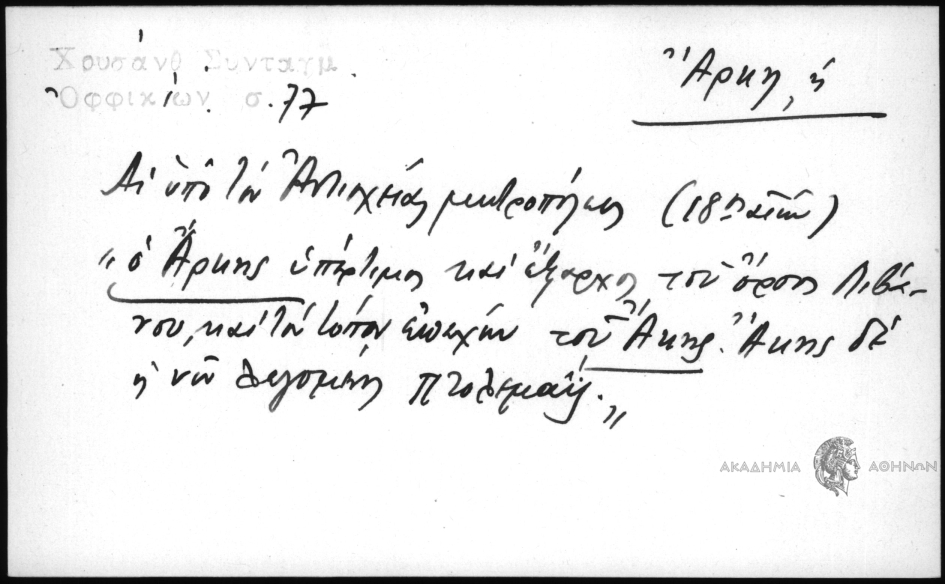 Χρυσάνθ Συνταγμ.
Ὀφφικίων σ. 77
Ἄρκη, ἡ
Αἱ ὑπὸ τὸν Ἀντιοχείας μητροπόλεις (18ος αἰών)
"ὁ Ἄρκης ὑπέρτιμος καὶ ἔξαρχος τοῦ ὄρους Λιβά-
νου, καὶ τὸν τόπον ἐπέχων τοῦ Ἄκης. Ἄκης δὲ
ἡ νῦν λεγομένη Πτολεμαΐς."
ΑΚΑΔΗΜΙΑ ΑΘΗΝΩΝ